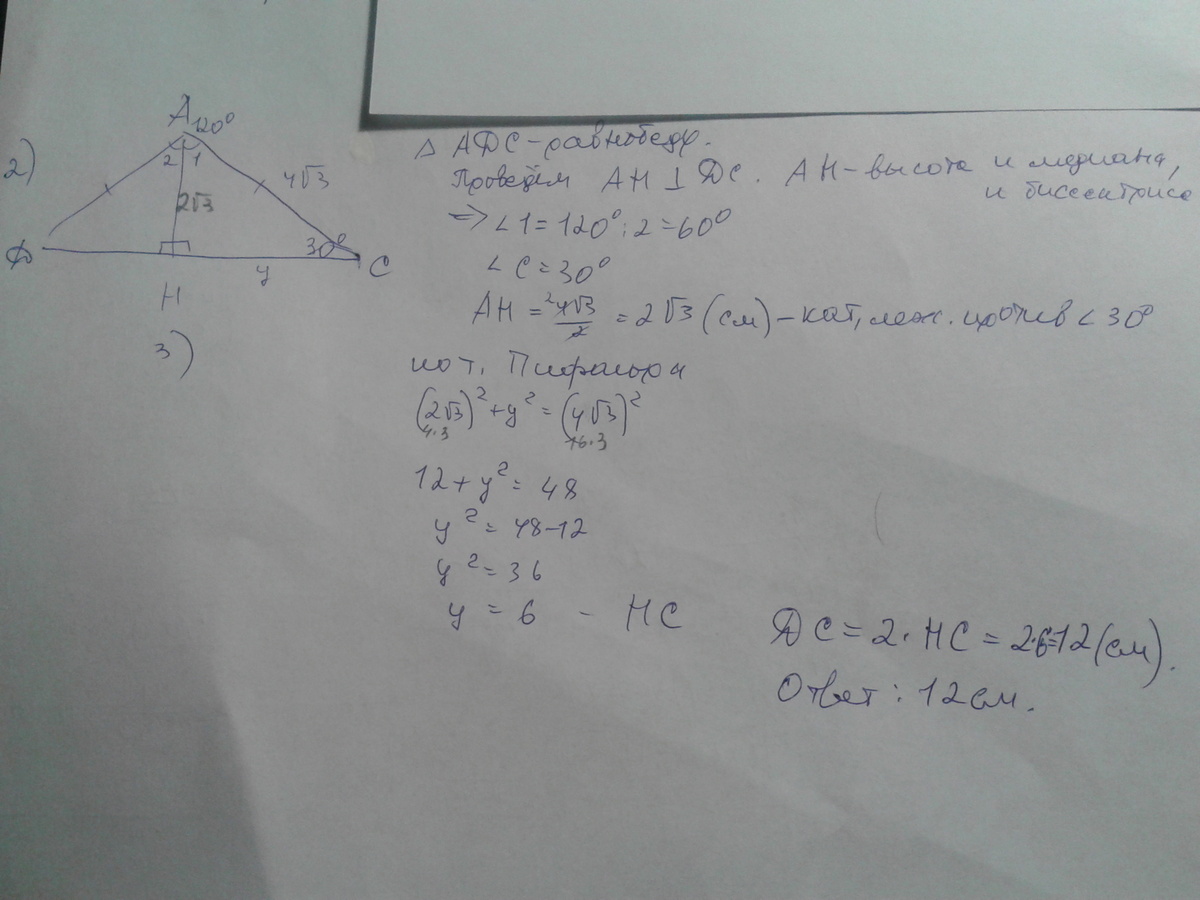 2)
A 120°
2 1
4√3
2√3
30°
Д
C
y
H
3)
△ АДС - равнобедр.
Проведём AH ⊥ ДС. AH - высота и медиана,
и биссектриса
=> ∠1 = 120° : 2 = 60°
∠C = 30°
AH = 4√3/2 = 2√3 (см) - кат, леж. против ∠30°
по т. Пифагора
(2√3)² + y² = (4√3)²
4·3 16·3
12 + y² = 48
y² = 48 - 12
y² = 36
y = 6 - HC
ДС = 2 · HC = 2·6=12 (см).
Ответ: 12 см.